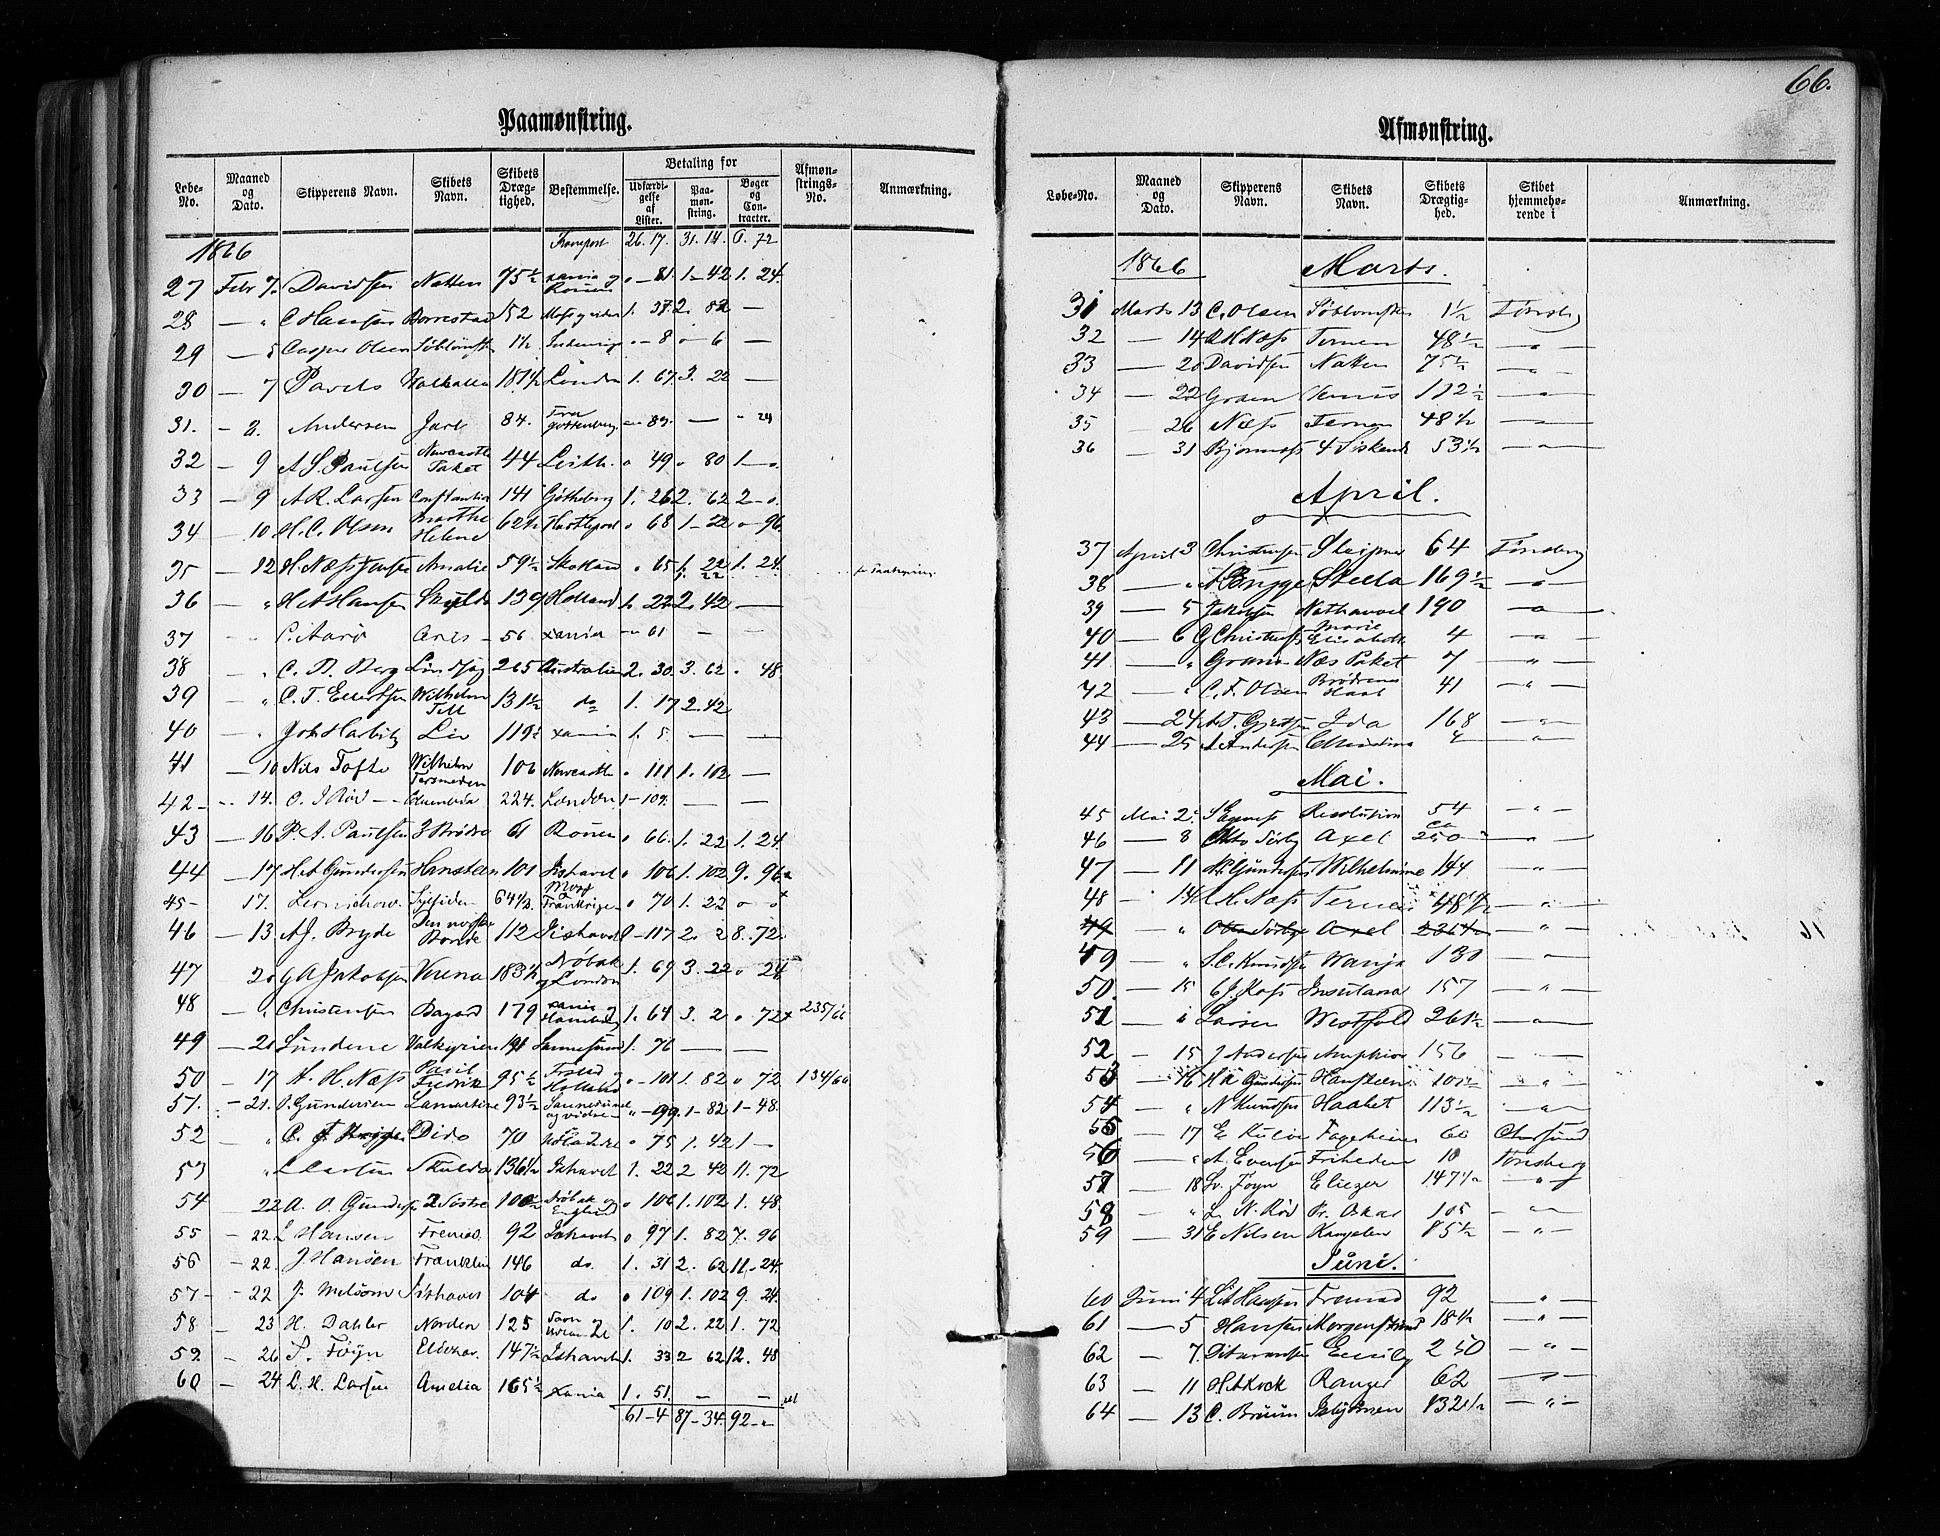 66.
Paamønstring.
Løbe-No. Maaned og Dato. Skipperens Navn. Skibets Navn. Skibets Drægtighed. Bestemmelse. Betaling for Udfærdigelse af Lister. Paamønstring. Bøger og Contracter. Afmønstrings-No. Anmærkning.
1866 Transport 26. 17. 31. 14. 72
27 Febr 7. Davidsen Natten 75½ xania og Rouen 0 – 81. 1 – 42 1. 24.
28 — " C Hansen Borrestad 152 Moss og viden 1. 37. 2. 82 —
29 — Casper Olsen 1½ 0 – 8 0 – 6 —
30 — 7 Pavels Walhalla 187½ London 1. 67. 3. 22 —
31. – 2. Andersen Jarl 84. Fra Gottenberg — 89. — " 24
32 – 9 A. S. Paulsen Newcastle Paket 44 Leith. 0 49 0 80 1 – 0.
33 – 9 A. R. Larsen Constantia 141 Gøtheborg 1. 26 2. 62 2 – 0.
34 – 10 H. C. Olsen Marthe Helene 62½ Hartlepool 0 68 1 – 22 0 – 96.
35 – 12 H. Næss Jensen Amalie 59½ Skotland 0 65 1. 22 1. 24.
36 " H A Hansen Skulda 139 Holland 1. 22 2. 42 —
37 " C. Aarø Aris – 56 xania — 61 — —
38 — " C. B. Berg Lindsay 265 Australien 2. 30. 3. 62 0. 48.
39 — " C. T. Ellertsen Wilhelm Tell 131½ do 1. 17 2. 42
40 — " Joh Harbitz Liv 119½ xania 1. 5. — —
41 — 10 Nils Tofte Wilhelm Tersmeden 106 Newcastle 0 111 1. 102 —
42 – 14. O. J Rød Columbia 224. London 1 – 109. — —
43 — 16 P. A. Paulsen 3 Brødre 61 Rouen 0 66. 1. 22 1. 24.
44 — 17 H A Gundersen Hansteen 101 Ishavet 0 106 1. 102 9. 96
45 – 17. 64½ Moss Frankrige 0 70 1. 22 0 – 0
46 – 13. A J. Bryde Den norske Bonde 112 Ishavet 0 – 117 2. 2 8. 72.
47 – 20 G A Jakobsen Verena 183½ Drøbak og London 1. 69 3. 22 0 24
48 — " Christensen Bayard 179 xania og Hamburg 1. 64 3. 2 0. 72 235/66
49 — 21 Lundene Valkyrien 191 Sannesund 1. 76 — —
50 – 17 A. H. Næss Paul Fredrik 95½ Holland 0 – 101 1. 82 0 72 134/66
51. – 21. O. Gundersen Lamartine 93½ Sannesund og vidre " – 99. 1 – 82 1 – 48.
52 " C. Dido 70 Holland 0 75 1. 42 1 —
53 " L Larsen Skulda 136½ Ishavet 1. 22 2 42 11. 72
54 22 A. O. Gunders 2 Søstre 100½ Drøbak og England 0 106 1. 102 1. 48.
55 – 22 L Hansen Fremad. 92 Ishavet 0 97 1. 82 7. 96
56 – 22. J Hansen Franklin 146 do. 1. 31 2. 62 11 – 24.
57 – 22 J. Melsom Ishavet 104 do 0 109 1. 102 9. 24.
58 – 23 H. Dahler Norden 125 1. 10 2. 22 1. 72
59 – 26 S. Føyn Eliezer. 147½ Ishavet 1. 33 2 62 12. 48
60 – 24 L. H. Larsen Amelia 165½ xania 1. 51. — —
61 – 4 87 – 34. 92 – "
Afmønstring.
Løbe-No. Maaned og Dato. Skipperens Navn. Skibets Navn. Skibets Drægtighed. Skibet hjemmehørende i Anmærkning.
1866 Marts.
31 Marts 13 C. Olsen 1½ Tønsberg
32 — 14 A H Næss Ternen 48½ — " —
33 — 20 Davidsen Natten 75½ — " —
34 — 22 Graen Venus 112½ — " —
35 — 26 Næss Ternen 48½ — " —
36 — 31 Bjønness 4 Siskende 53½ — " —
April.
37 April 3 Christensen Sleipner 64 Tønsberg
38 — " A Brygge Stella 169½ — " —
39 — 5 Jakobsen Nathanael 190 — " —
40 — 6 G Christensen Marie Elisabeth 4 — " —
41 — " Graen Næs Paket 7 — " —
42 — " C. F. Olsen Brødrenes Haab 41 — " —
43 — 24 A. T. Gjertsen Ida 168 — " —
44 — 25 A Andersen Christina — " —
Mai.
45 Mai 2. Revolution 54 — " —
46 — 8 Otto Sørby Axel ca 250 — " —
47 — 11 H. Gundersen Wilhelmine 144 — " —
48 – 14 A H. Næss Ternen 48½ — " —
49 — " Otto Sørby Axel 236½ — " —
49 " S. C. Knudsen Wanja 130 — " —
50. — 15 C J. Foss Insulana 157 — " —
51 — " Larsen Westfold 261½ — " —
52 – 15 J Andersen Amphion 156 — " —
53 — 16 H A Gundersen Hansteen 101½ — " —
54 — " N Knudsen Haabet 113½ — " —
55 — 17 E Kuløe Fageheim 60
56 — " A. Evensen Friheden 10 Tønsberg
57 — 18 Sv. Føyn Eliezer 147½ — " —
58 — " L. N. Rød Pr. Oskar 105 — " —
59 — 31 E Nilsen 85½ — " —
Juni.
60 Juni 4 L A Hansen Fremad 92 — " —
61 — 5 Hansen Morgenstjernen 18½ — " —
62 — 7. Ditmansen Emily 250 — " —
63 — 11 H A Kock Ranger 62 — " —
64 — 13 C. Bruun Isbjørnen 132½ — " —